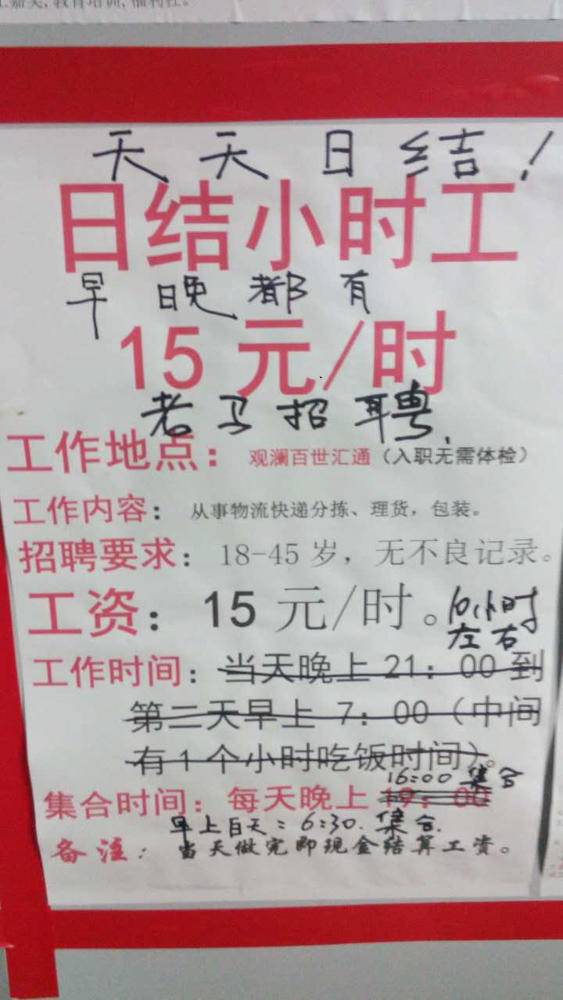 天天日结!
日结小时工
早晚都有
15元/时
老马招聘
工作地点：观澜百世汇通（入职无需体检）
工作内容：从事物流快递分拣、理货，包装。
招聘要求：18-45岁，无不良记录。
工资：15元/时。10小时
左右
工作时间：当天晚上21：00到
第二天早上7：00（中间
有1个小时吃饭时间）。
16:00集合
集合时间：每天晚上19：00
早上白天：6:30.集合.
备注：当天做完即现金结算工资。